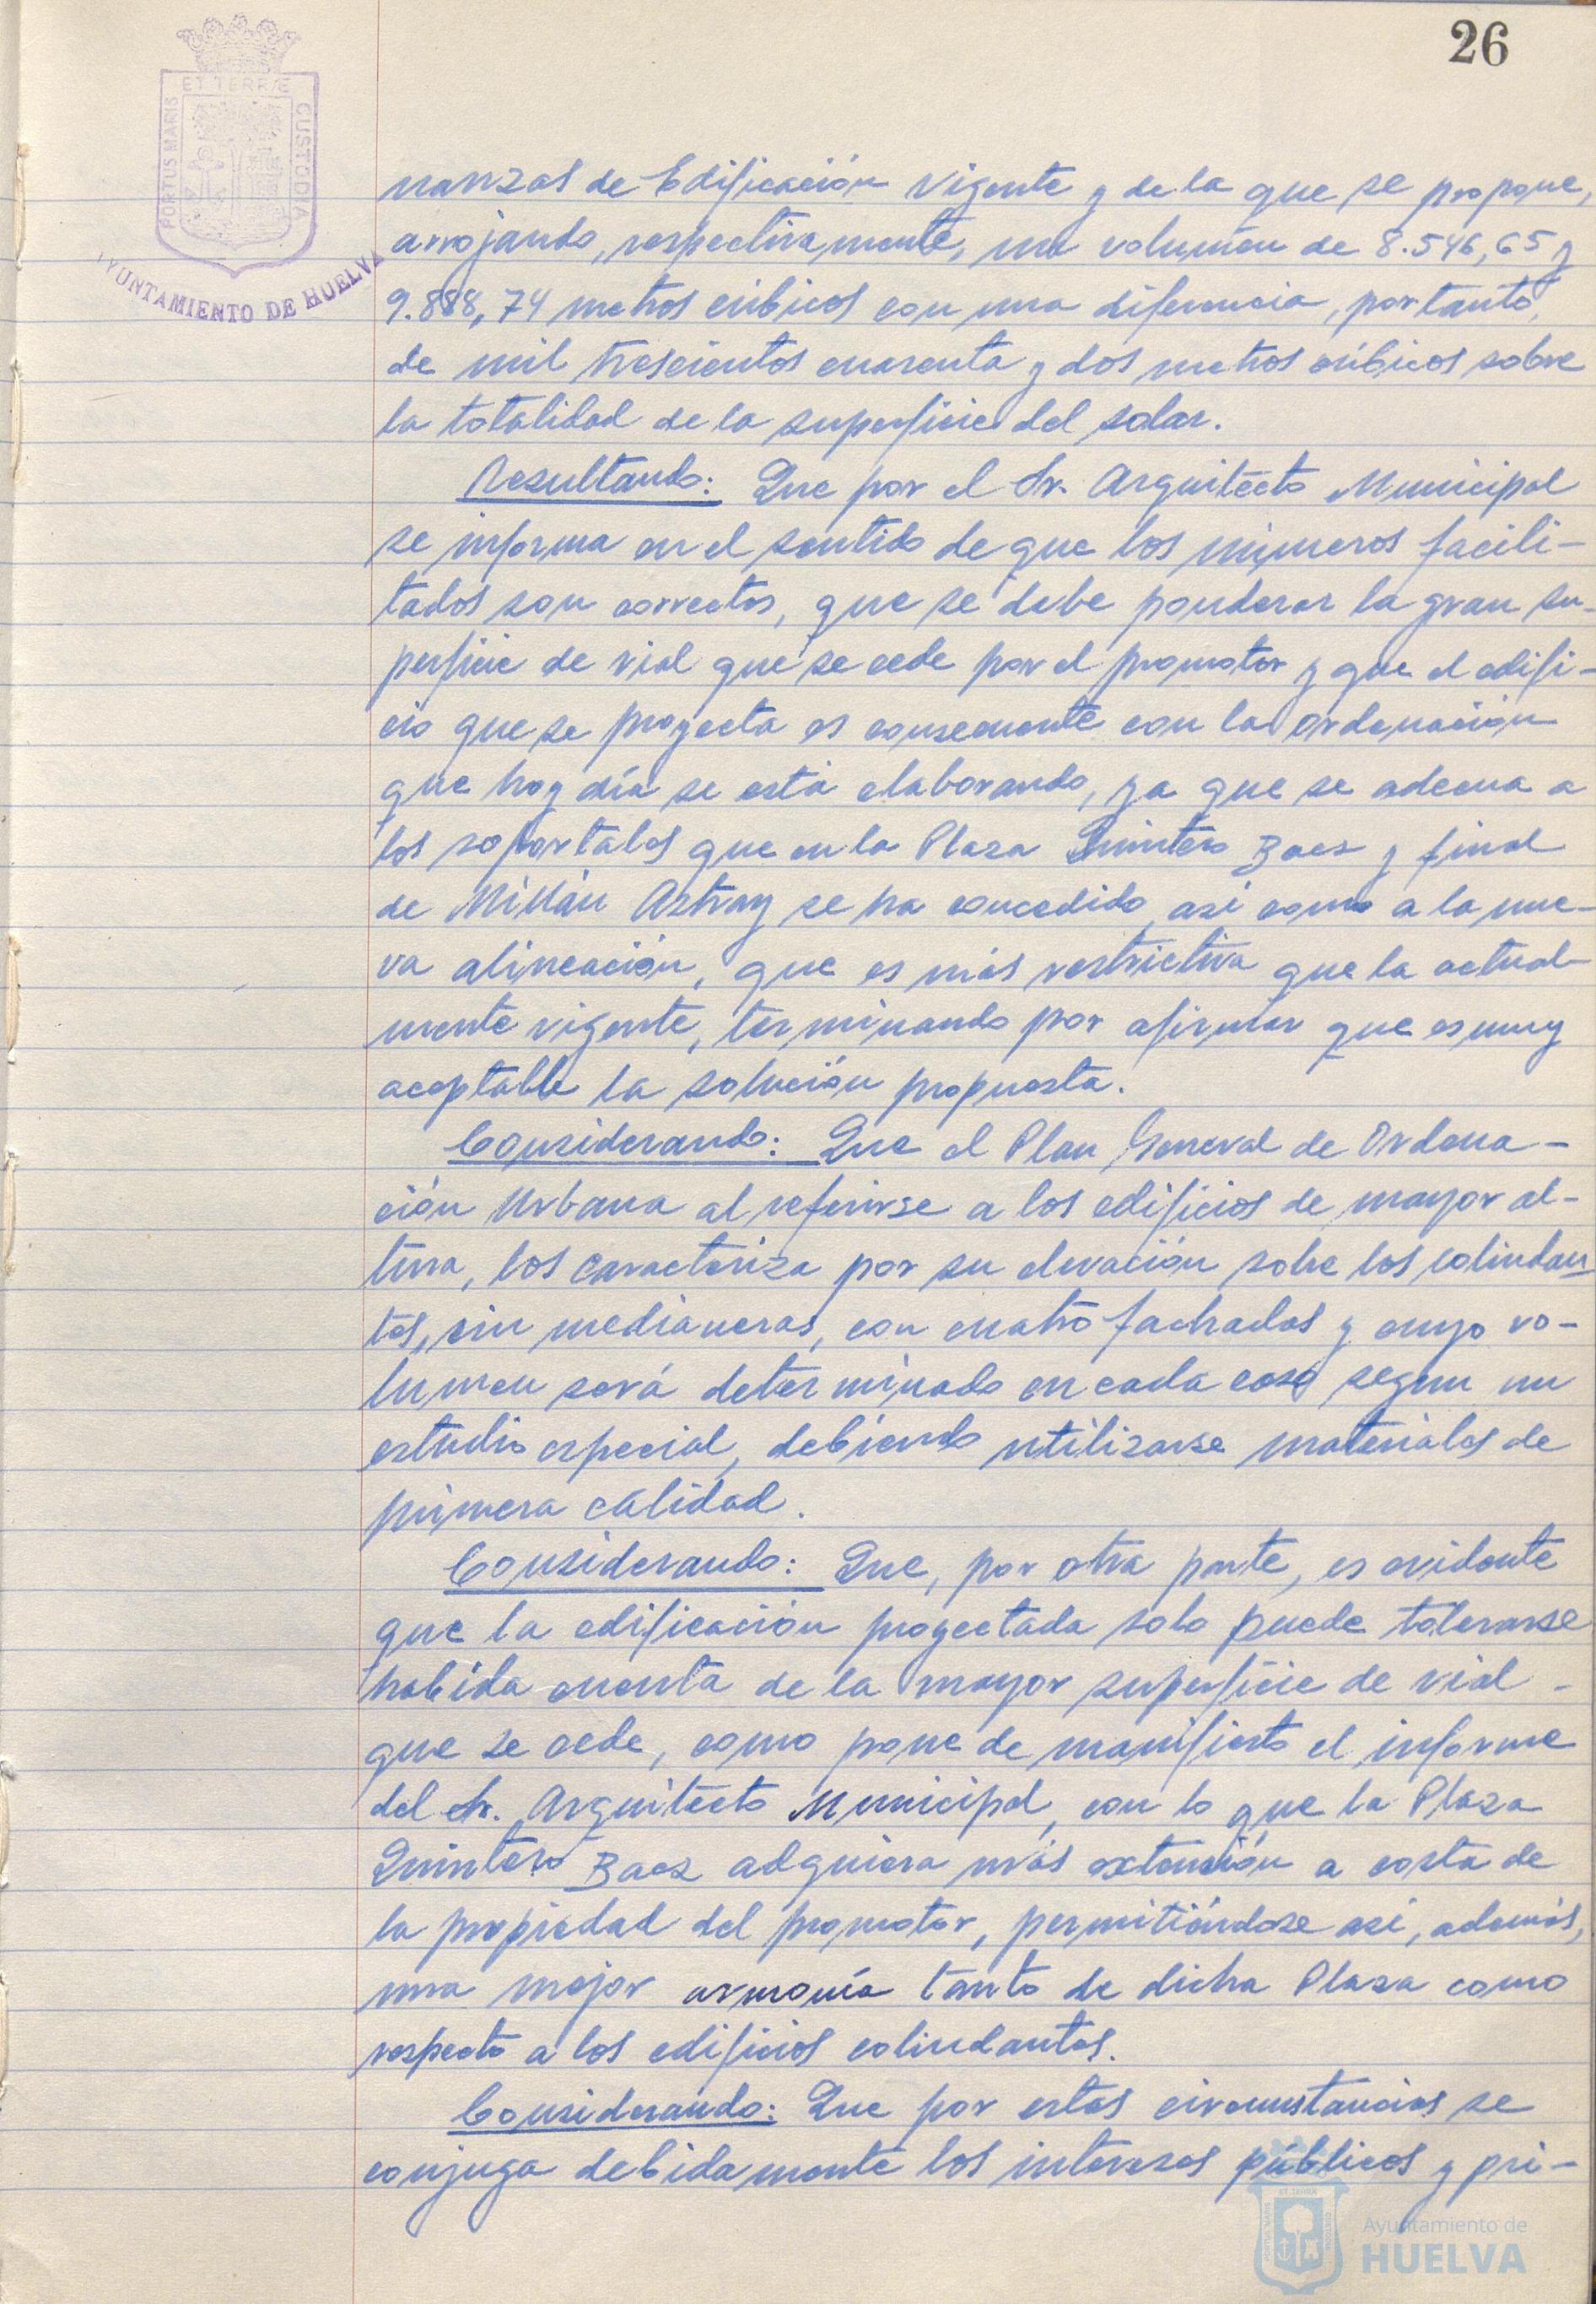 26
ET TERRÆ
PORTUS MARIS
CUSTODIA
AYUNTAMIENTO DE HUELVA
nanzas de Edificación vigente y de la que se propone,
arrojando, respectivamente, un volumen de 8.546,65 y
9.888,74 metros cúbicos con una diferencia, por tanto,
de mil trescientos cuarenta y dos metros cúbicos sobre
la totalidad de la superficie del solar.
Resultando: Que por el Sr. Arquitecto Municipal
se informa en el sentido de que los números facili-
tados son correctos, que se debe ponderar la gran su-
perficie de vial que se cede por el promotor y que el edifi-
cio que se proyecta es consecuente con la ordenación
que hoy día se está elaborando, ya que se adecua a
los soportales que en la Plaza Quintero Baez y final
de Millán Astray se ha concedido, así como a la nue-
va alineación, que es más restrictiva que la actual-
mente vigente, terminando por afirmar que es muy
aceptable la solución propuesta.
Considerando: Que el Plan General de Ordena-
ción Urbana al referirse a los edificios de mayor al-
tura, los caracteriza por su elevación sobre los colindan
tes, sin medianeras, con cuatro fachadas y cuyo vo-
lumen será determinado en cada caso segun un
estudio especial, debiendo utilizarse materiales de
primera calidad.
Considerando: Que, por otra parte, es evidente
que la edificación proyectada solo puede tolerarse
habida cuenta de la mayor superficie de vial -
que se cede, como pone de manifiesto el informe
del Sr. Arquitecto Municipal, con lo que la Plaza
Quintero Baez adquiera más extensión a costa de
la propiedad del promotor, permitiéndose así, además,
una mejor armonía tanto de dicha Plaza como
respecto a los edificios colindantes.
Considerando: Que por estas circunstancias se
conjuga debidamente los intereses públicos y pri-
Ayuntamiento de
HUELVA